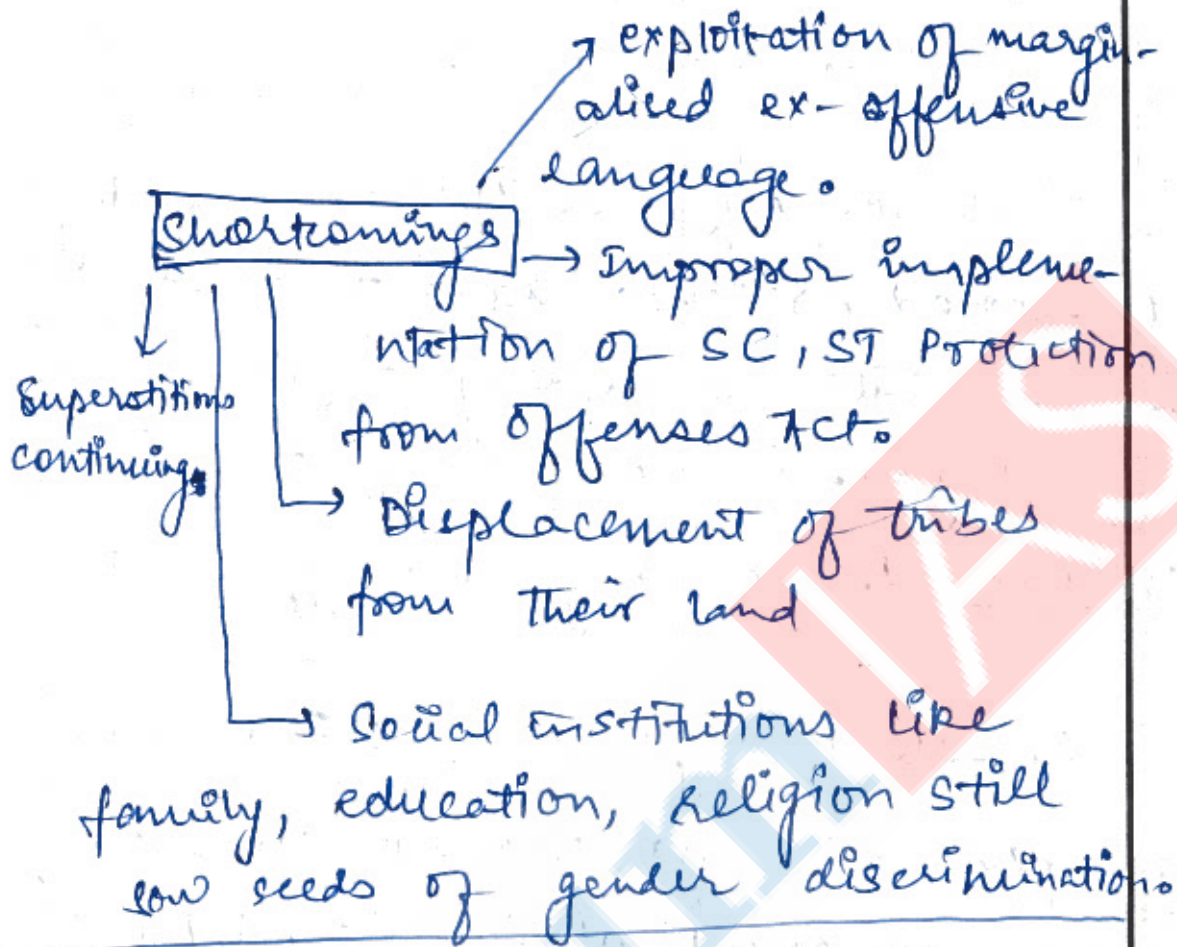 → exploitation of margin-
alised ex- offensive
language.
Shortcomings
→ Improper impleme-
ntation of SC, ST Protection
from Offenses Act.
Superstitions
continuing.
→ Displacement of tribes
from their land
→ Social institutions like
family, education, religion still
sow seeds of gender discrimination.
IAS
um